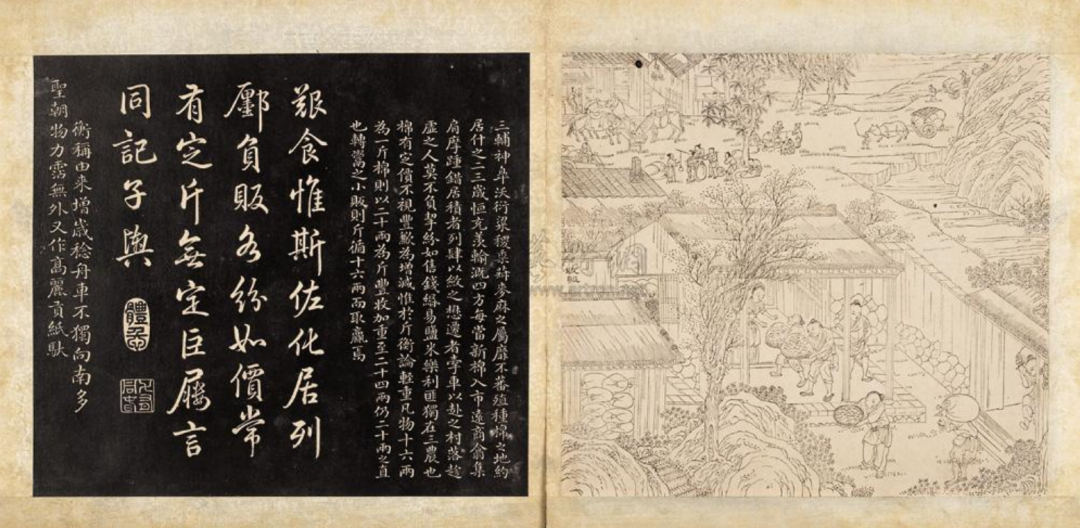 三輔神皋沃衍粱稷黍菽麥麻之屬靡不蕃殖種棉之地約
居什之二三歲恒充羨輸溉四方每當新棉入市遠商翕集
肩摩踵錯居積者列肆以斂之懋遷者牽車以赴之村落趁
虛之人莫不負挈紛如售錢緡易鹽米樂利匪獨在三農也
棉有定價不視豐歉為增減惟於斤衡論輕重凡物十六兩
為一斤棉則以二十兩為斤豐收加重至二十四兩仍二十兩之直
也轉鬻之小販則斤循十六兩而取贏焉
艱食惟斯佐化居列
廛負販各紛如價常
有定斤無定巨屨言
同記子輿
衡稱由來增歲稔舟車不獨向南多
聖朝物力霑無外又作高麗貢紙馱
收販